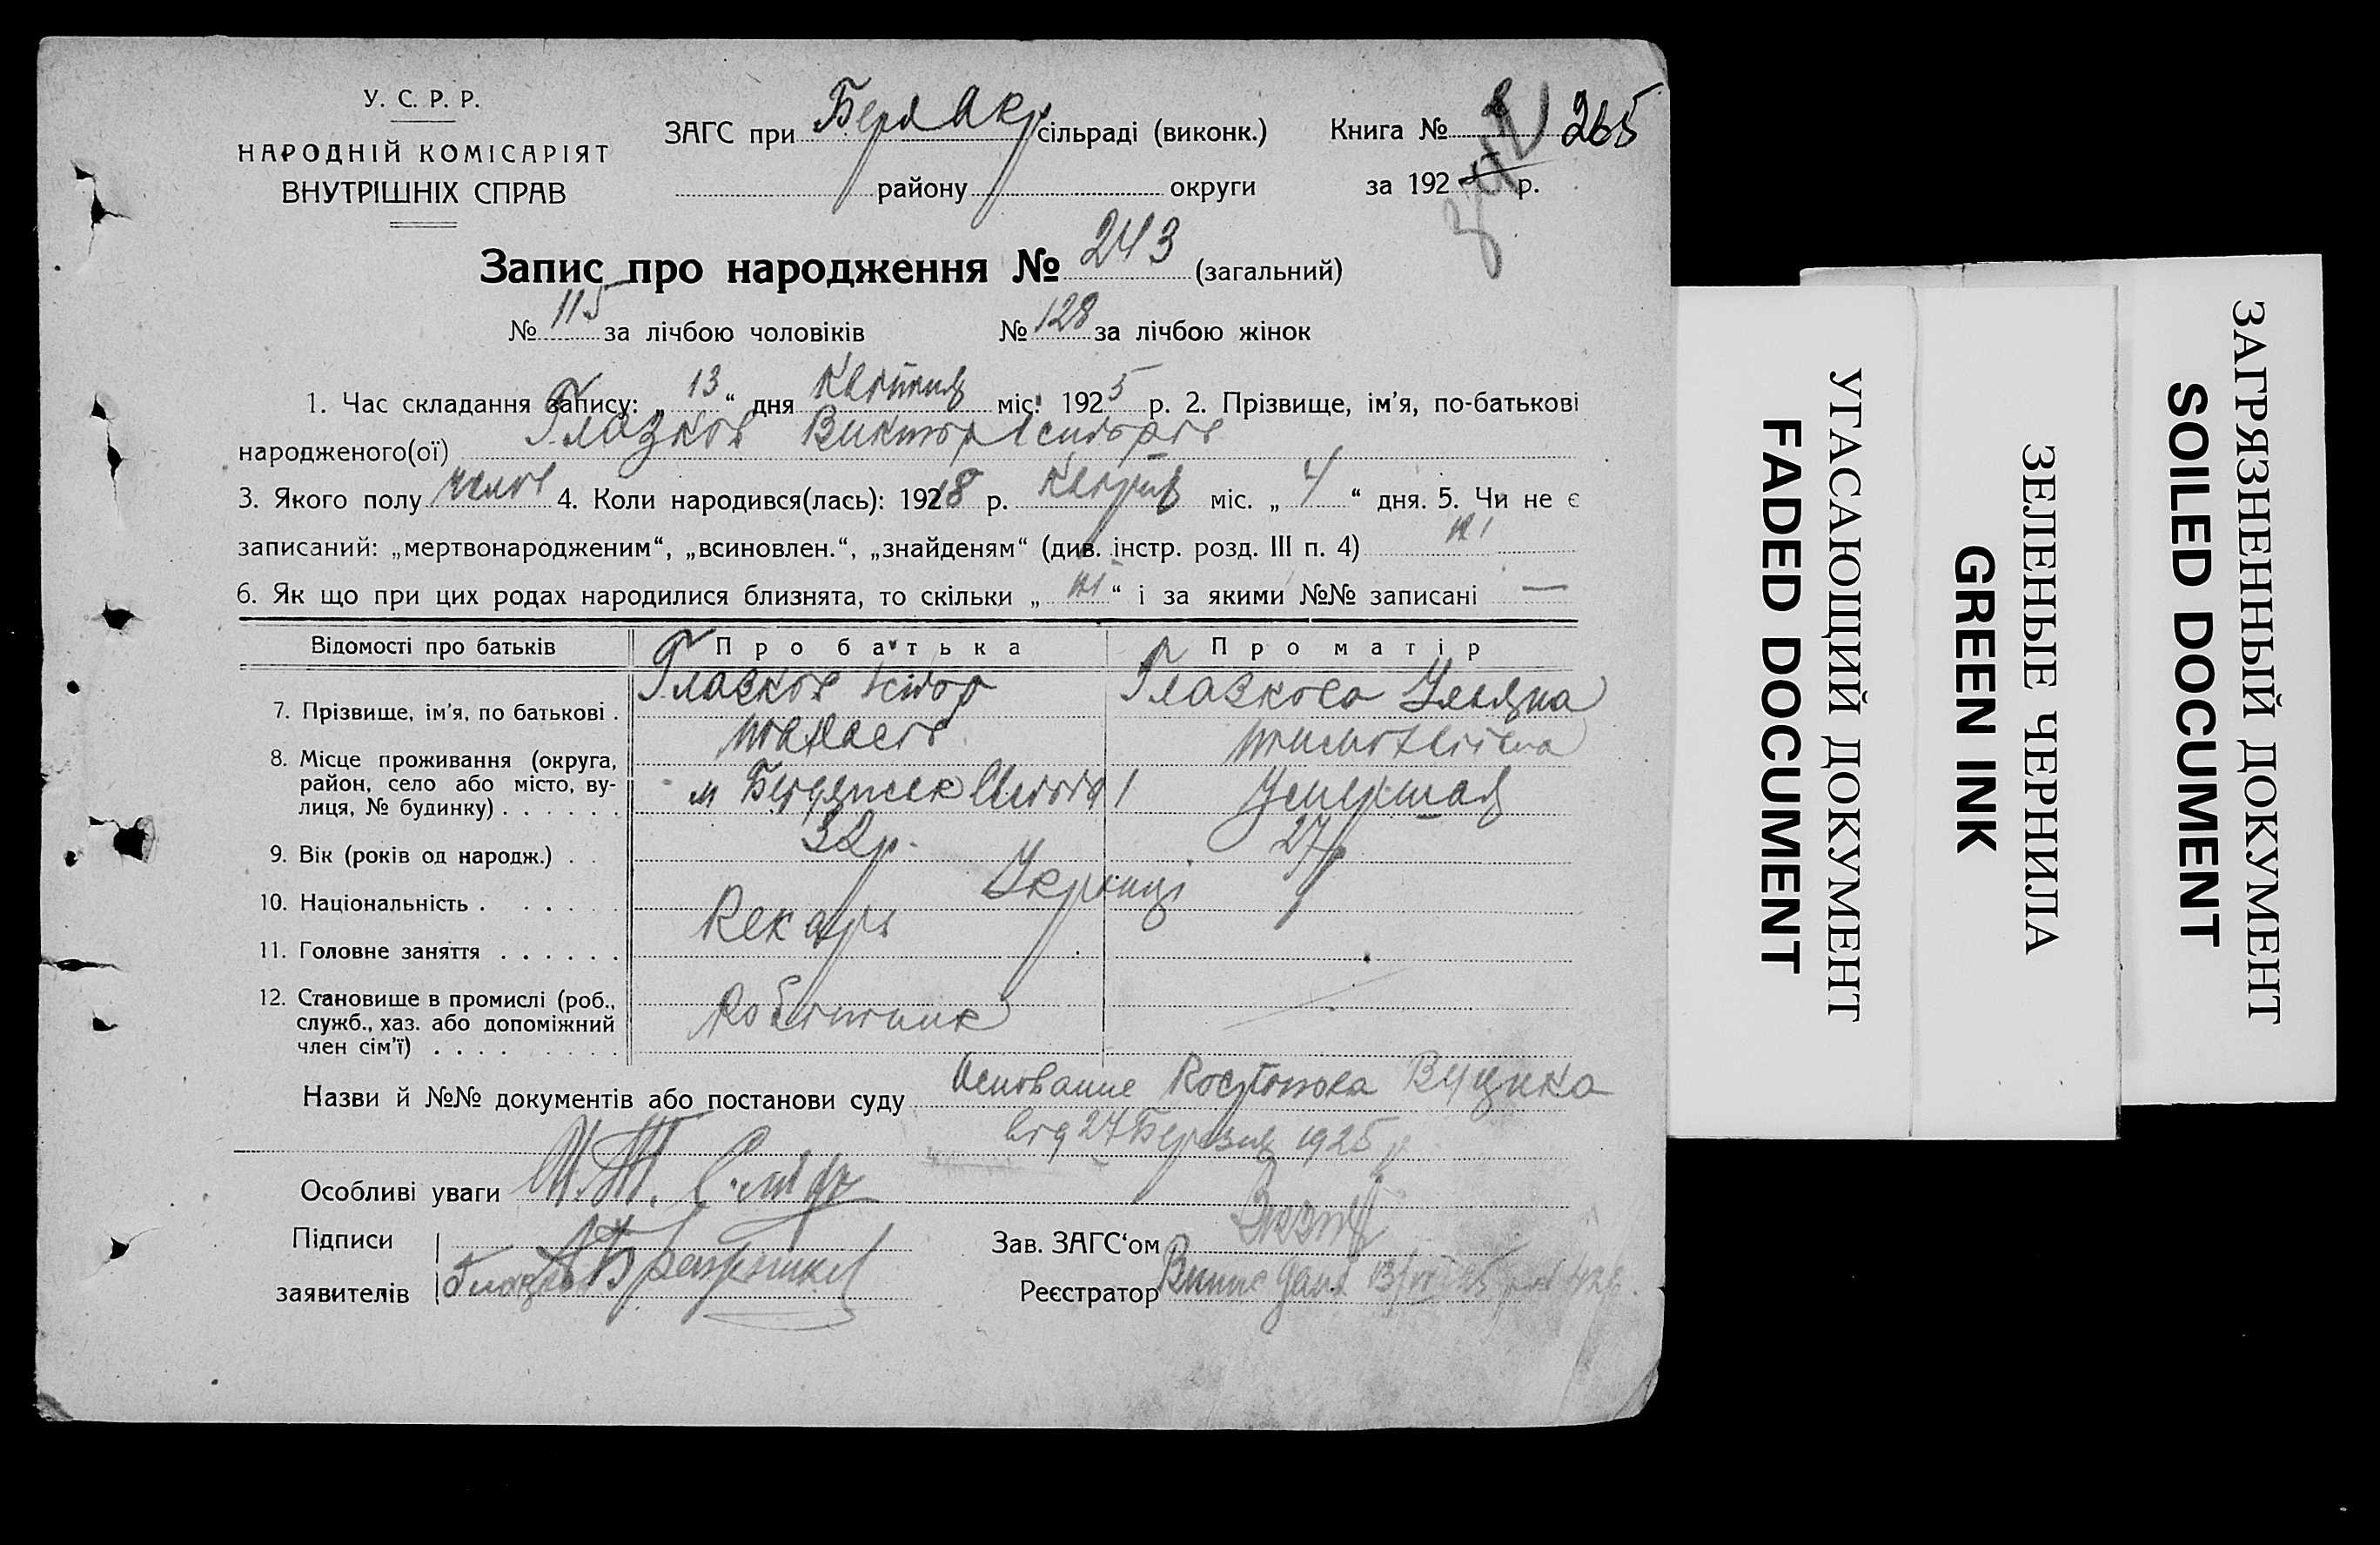 У. С. Р. Р.
НАРОДНІЙ КОМІСАРІЯТ
ВНУТРІШНІХ СПРАВ
ЗАГС при Берд Окр сільраді (виконк.) Книга № 265
району округи за 192 5 р.
Запис про народження № 243 (загальний)
№ 115 за лічбою чоловіків № 128 за лічбою жінок
1. Час складання запису: „ 13 “ дня Квітня міс. 1925 р. 2. Прізвище, ім'я, по-батькові
народженого(ої) Глазков Виктор
3. Якого полу 4. Коли народився(лась): 1918 р. міс. „ 4 “ дня. 5. Чи не є
записаний: „мертвонародженим“, „всиновлен.“, „знайденям“ (див. інстр. розд. III п. 4) ні
6. Як що при цих родах народилися близнята, то скільки „ ні “ і за якими №№ записані —
Відомості про батьків Про батька Про матір
7. Прізвище, ім'я, по батькові . Глазков Глазкова Уляна
8. Місце проживання (округа,
район, село або місто, ву-
лиця, № будинку) . . . . . .
м Бердянськ
9. Вік (років од народж.) . . 32р. 27р
10. Національність . . . . . . Українці
11. Головне заняття . . . . . . Пекарь
12. Становище в промислі (роб.,
служб., хаз. або допоміжний
член сім'ї) . . . . . . . . .
Робітник
Назви й №№ документів або постанови суду Основание Вуцика
від 27 Березня 1925 р
Особливі уваги
Підписи
заявителів
Зав. ЗАГС'ом
Реєстратор
УГАСАЮЩИЙ ДОКУМЕНТ
FADED DOCUMENT
ЗЕЛЕНЫЕ ЧЕРНИЛА
GREEN INK
ЗАГРЯЗНЕННЫЙ ДОКУМЕНТ
SOILED DOCUMENT